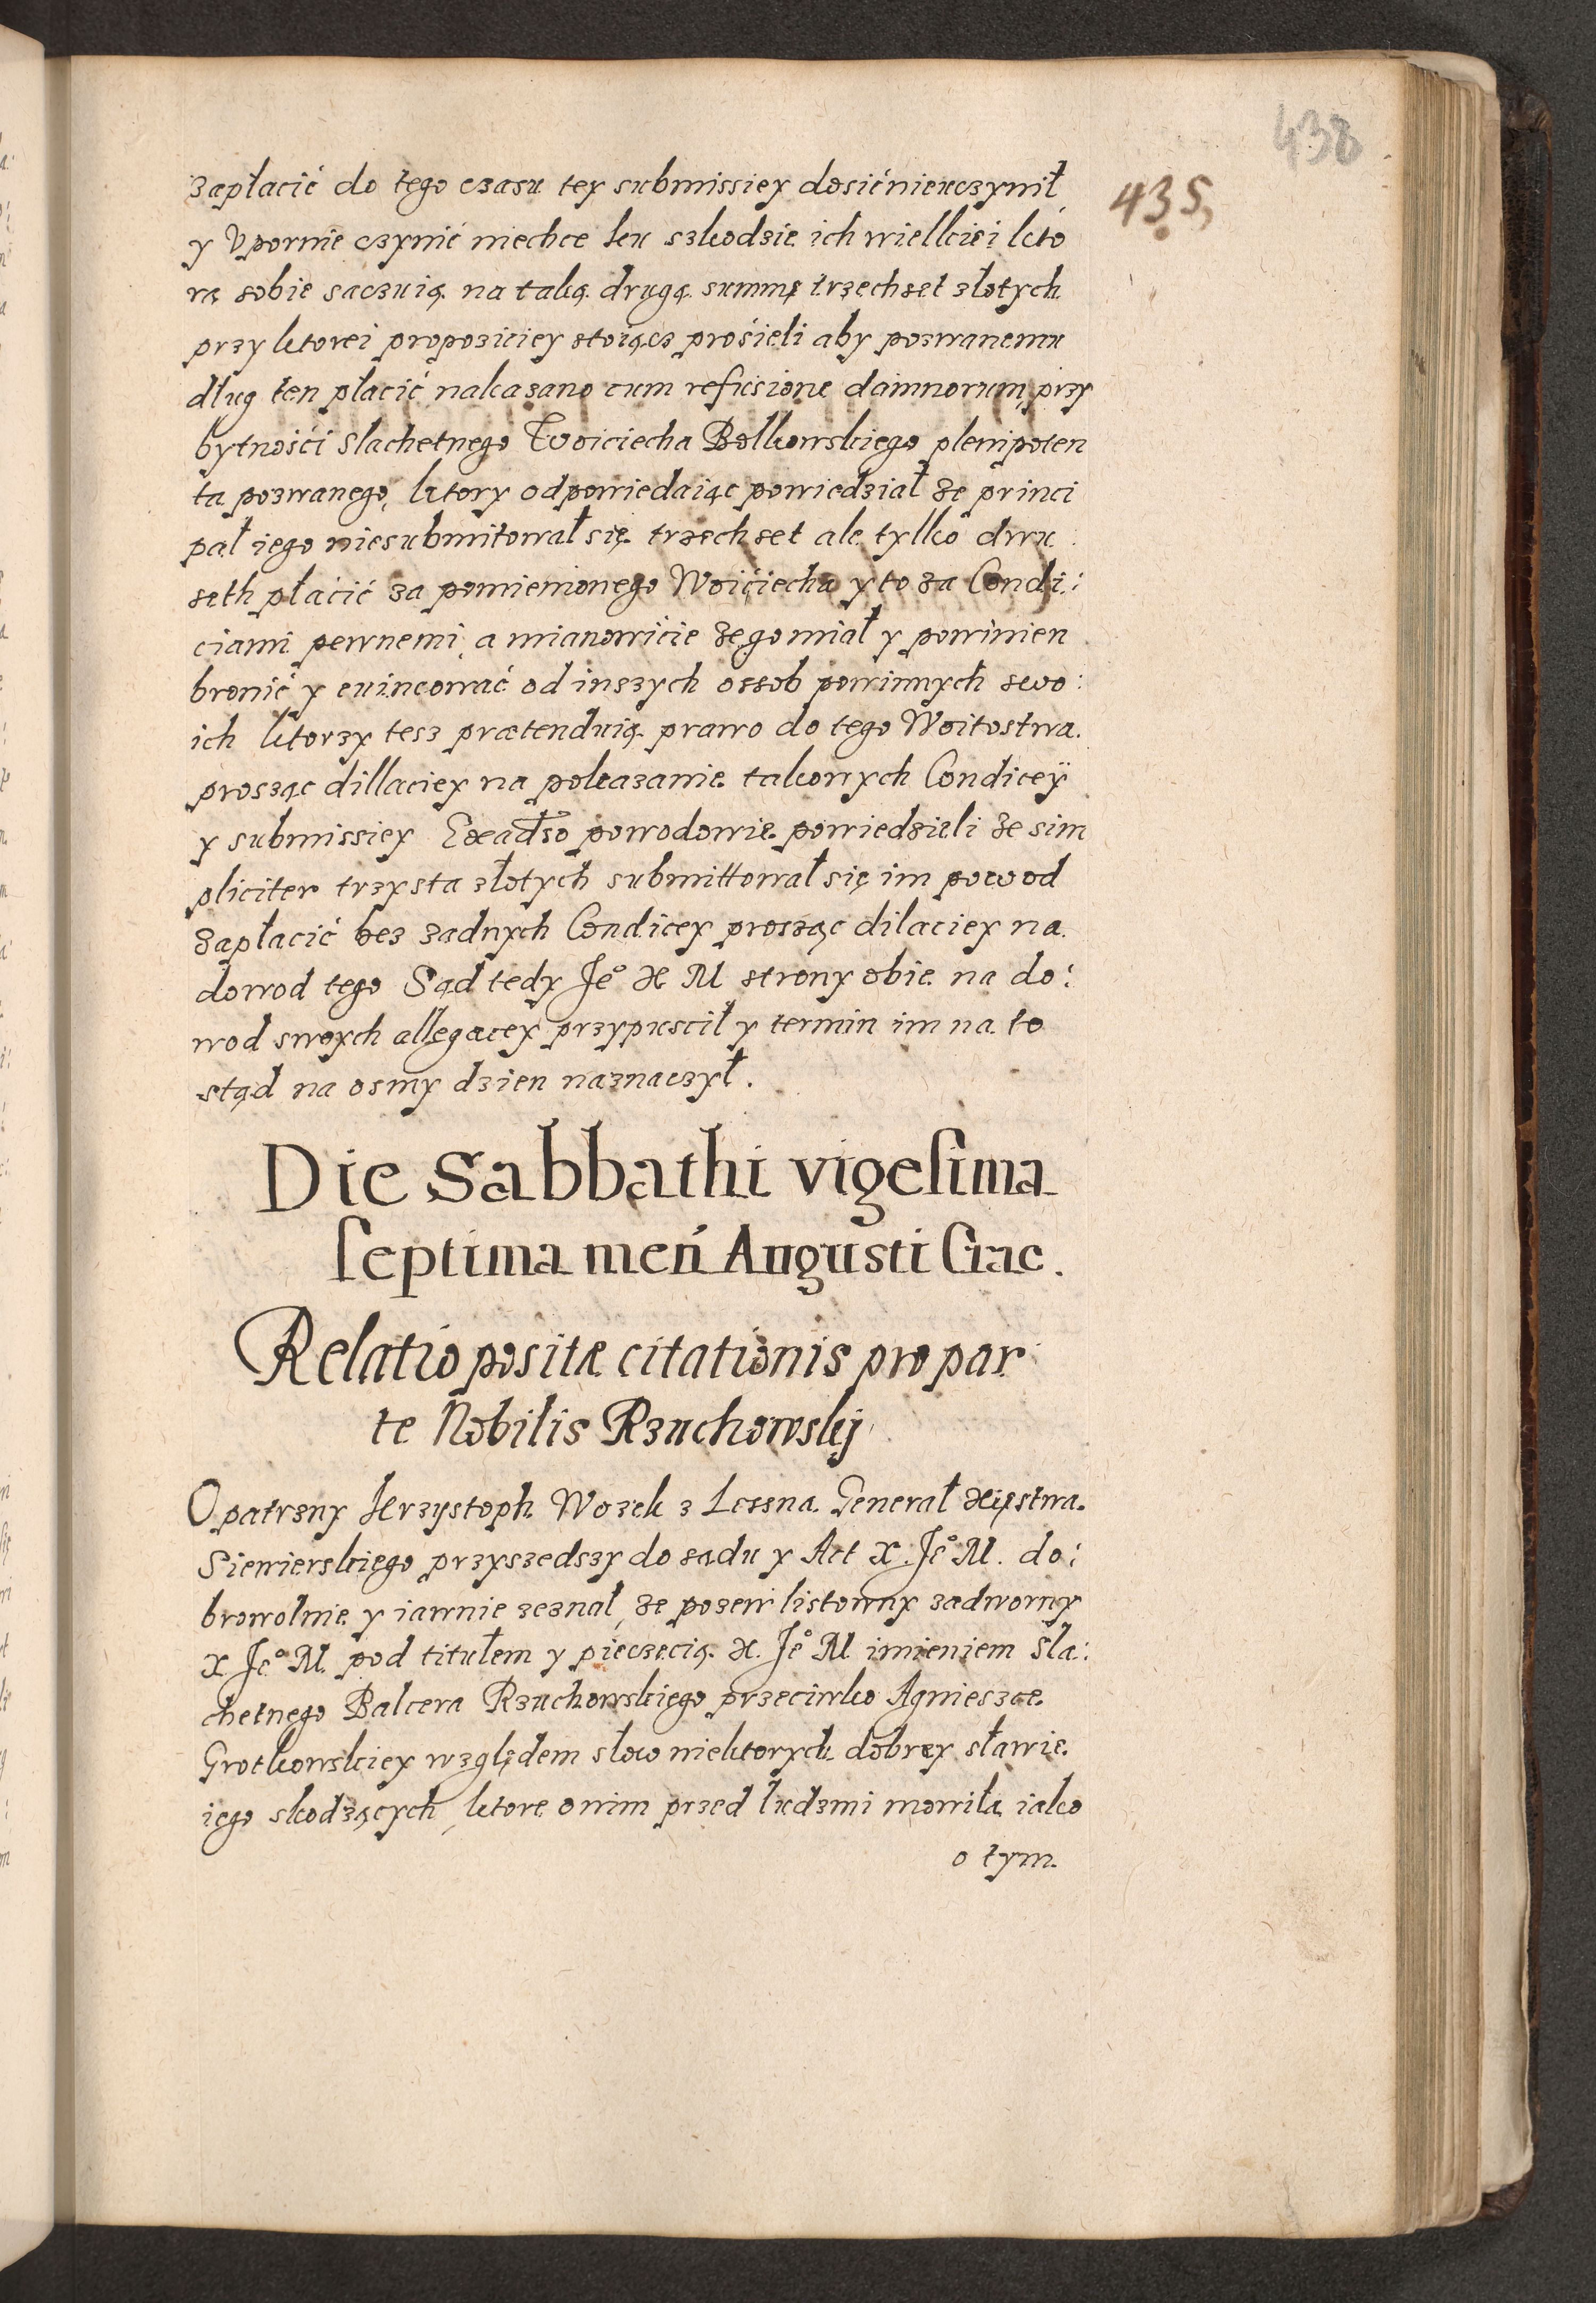 438
435,
zapłacić do tego czasu tey submissiey dosić nieuczynił,
y Vpornie czynić niechce ku szkodzie ich wielkiei kto
rą sobie saczuią na taką drugą summę trzechset złotych
przy ktorei propoziciey stoiącz prosieli aby pozwanemu
dług ten płacić nakazano cum refusione damnorum, przy
bytności slachetnego Woiciecha Bolkowskiego plenipoten
ta pozwanego, ktory odpowiedaiąc powiedział że princi
pał iego niesubmitował się trzechset ale tylko dwu
seth płacić za pomienionego Woiciecha y to za Condi:
ciami pewnemi, a mianowicie że go miał y powinien
bronić y euincować od inszych ossob powinnych swo:
ich ktorzy tesz prætenduią prawo do tego Woitostwa.
prosząc dillaciey na pokazanie takowych Condiceÿ
y submissiey powodowie powiedzieli że sim
pliciter trzysta złotych submittował się im powod
zapłacić bez żadnych Condicey prosząc dilaciey na
dowod tego Sąd tedy Je° X M strony obie na do:
wod swoych allegacey przypuscił y termin im na to
stąd na osmy dzien naznaczył.
Die Sabbathi vigesima
septima men̄ Augusti Siac.
Relatio positæ citationis pro par
te Nobilis Rzuchowskj
Opatrzny Krzystoph Wozek z Lessna General Xięstwa
Siewierskiego przyszedszy do sądu y Act X. Je° M. do:
browolnie y iawnie zeznał, że pozew listowny zadworny
X Je° M. pod titułem y pieczęcią X. Je° M imieniem sla:
chetnego Balcera Rzuchowskiego przeciwko Agnieszce
Grotkowskiey względem słow niektorych dobrey sławie
iego skodzących, ktore o nim przed ludzmi mowiła iako
o tym